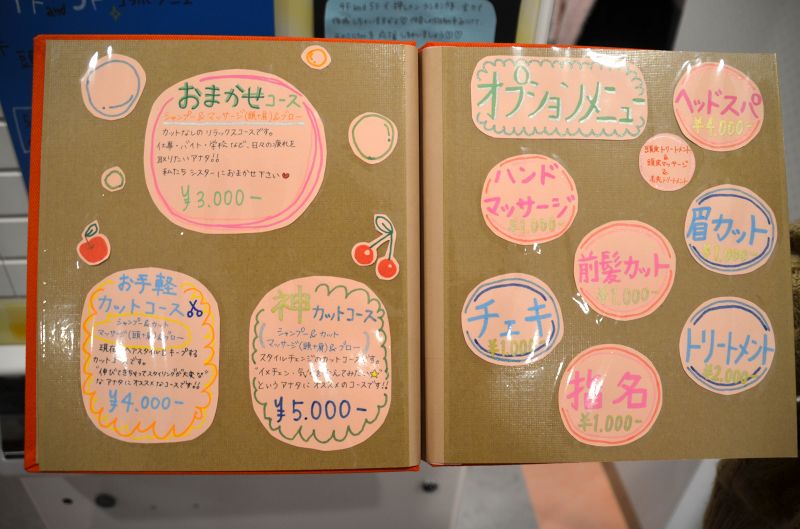 おまかせコース
シャンプー&マッサージ(頭+肩)&ブロー
カットなしのリラックスコースです。
仕事・バイト・学校など、日々の疲れを
取りたいアナタ!!
私たちシスターにおまかせ下さい♥
¥3.000-
お手軽
カットコース
シャンプー&カット
マッサージ(頭+肩)&ブロー
現在のヘアスタイルをキープする
カットコースです。
"伸びてきちゃってスタイリングが大変な"
なアナタにオススメなコースです!!
¥4.000-
神カットコース
シャンプー&カット
マッサージ(頭+肩)&ブロー
スタイルチェンジのカットコースです。
"イメチェン・
というアナタにオススメのコースです!!
¥5.000-
オプションメニュー
ヘッドスパ
¥4,000-
頭皮マッサージ
&
毛先トリートメント
ハンド
マッサージ
¥1.000-
眉カット
¥1.000-
前髪カット
¥1.000-
チェキ
¥1.000-
トリートメント
¥2.000-
指名
¥1.000-